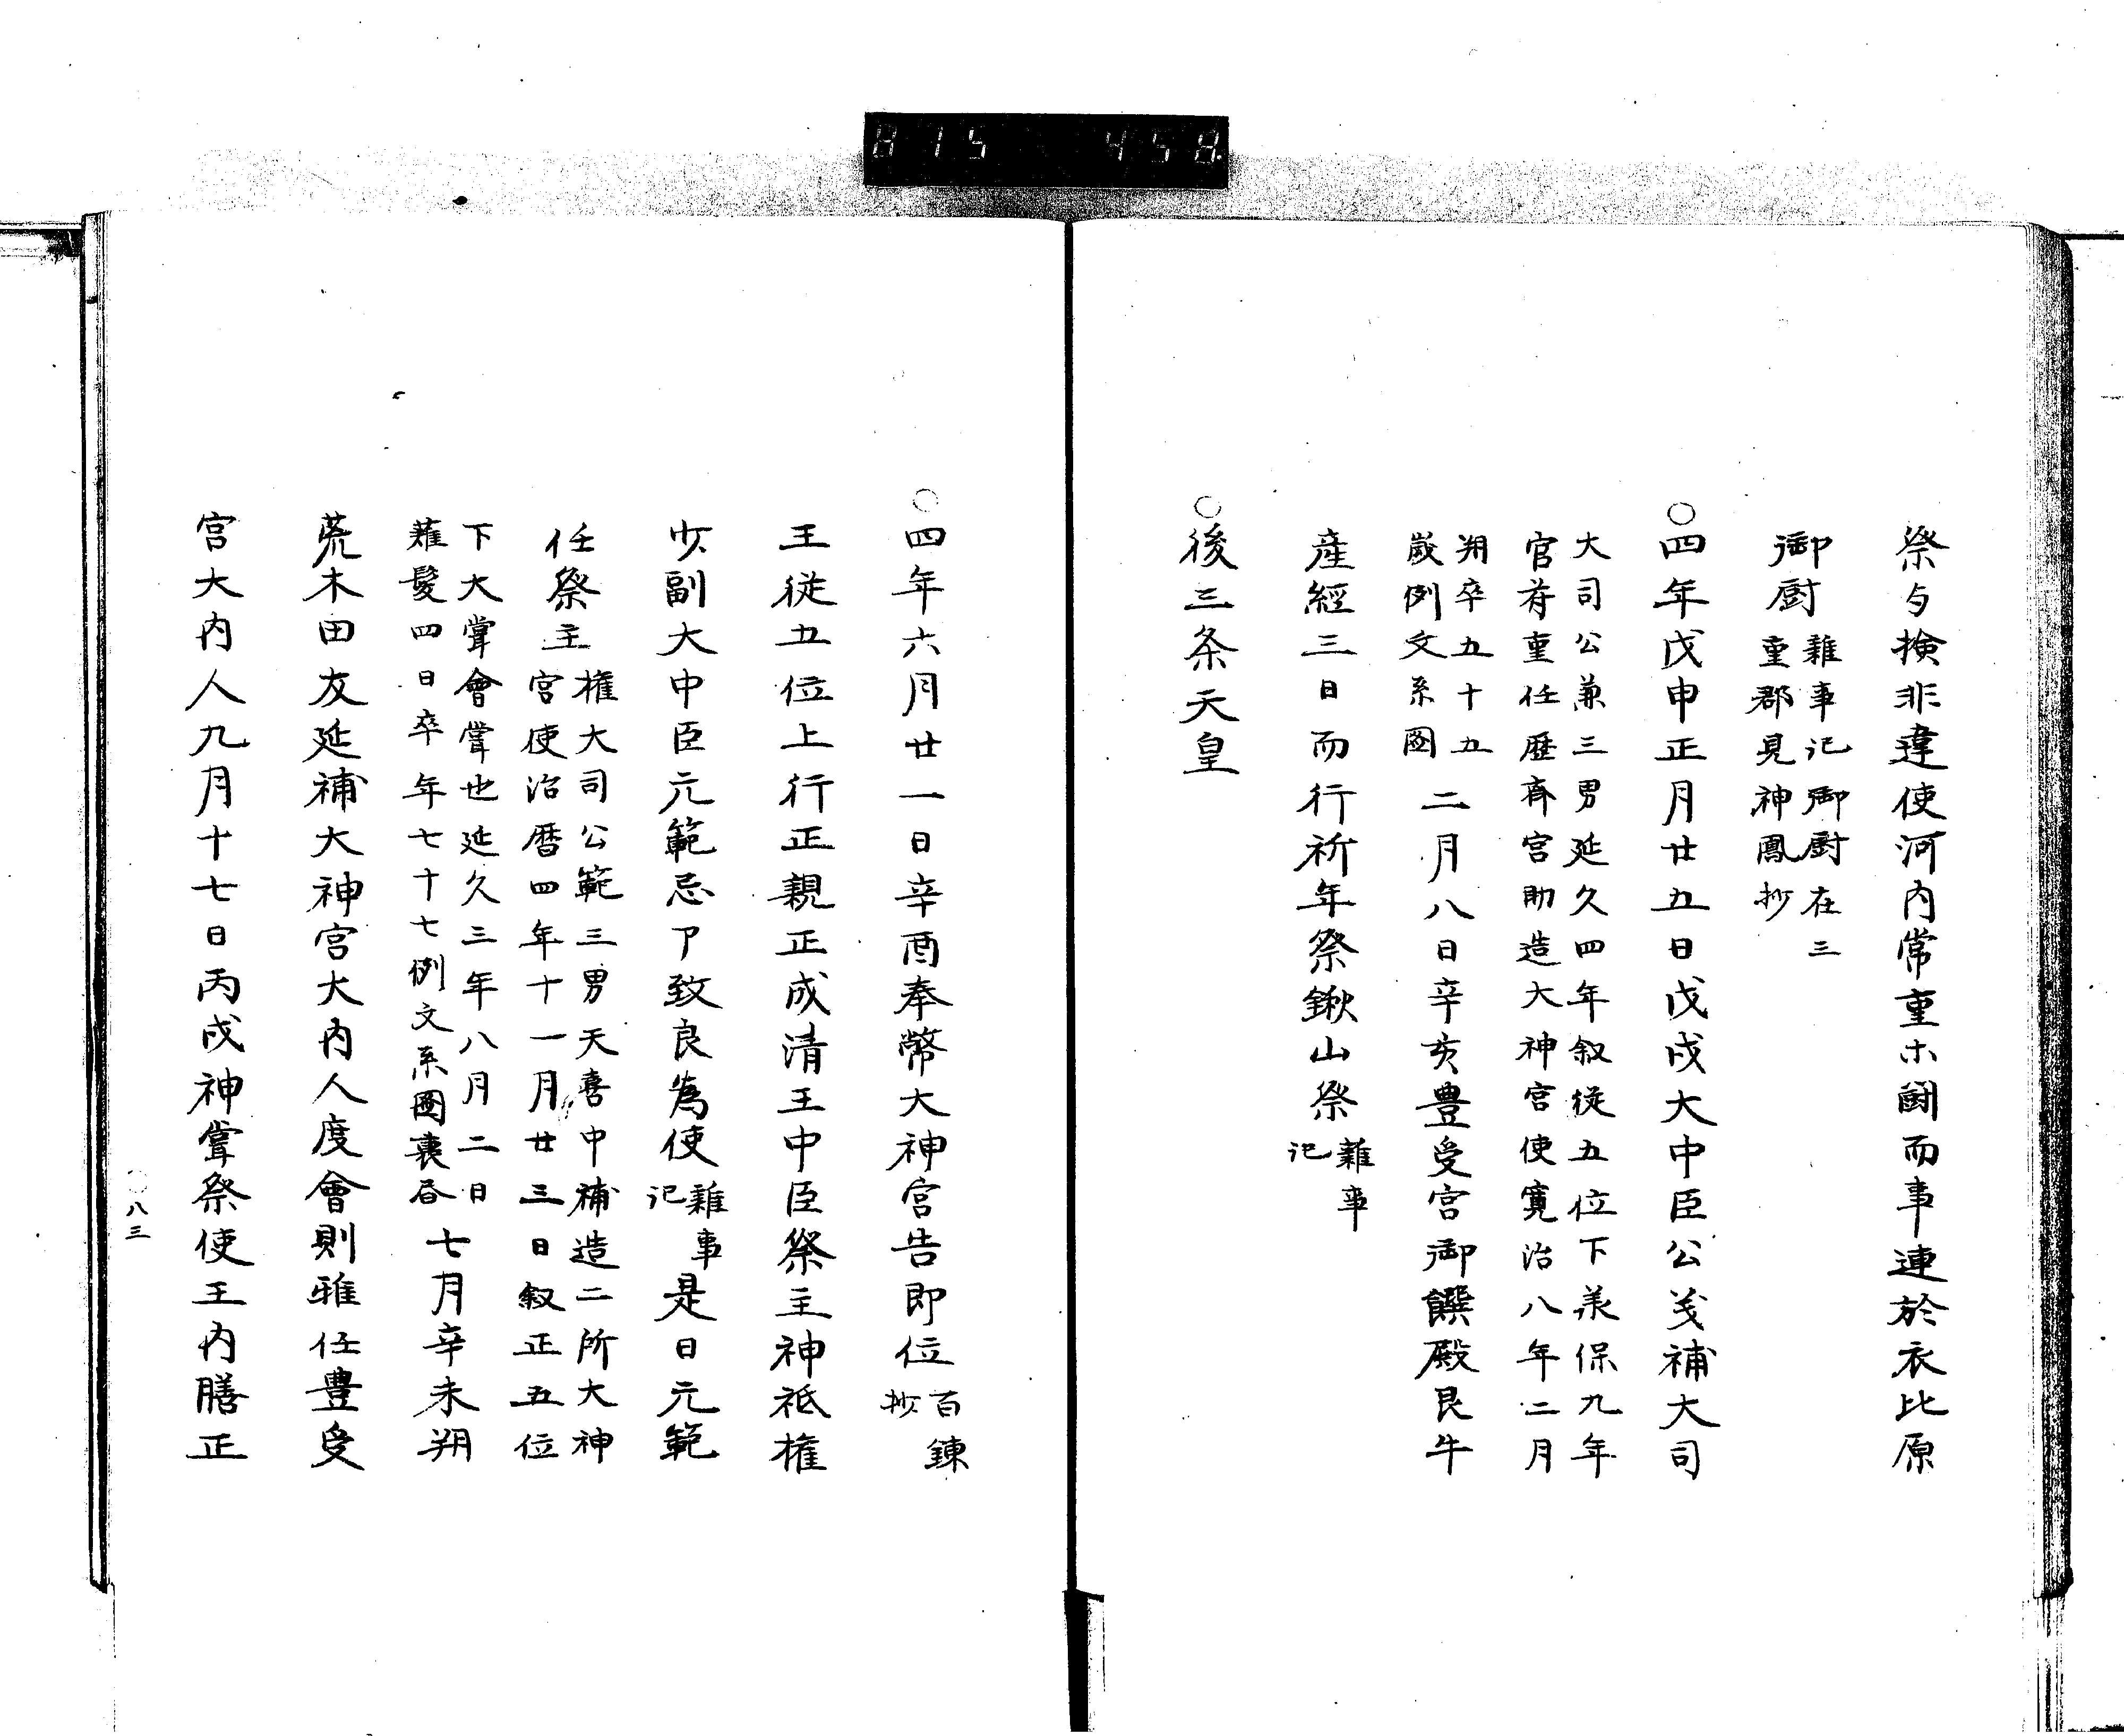 815 458
祭与検非違使河内常重朩闘而事連於衣比原
御厨 雜事記御厨在三
重郡見神鳳抄
○四年戊申正月廿五日戊戌大中臣公茂補大司
大司公兼三男延久四年叙従五位下承保九年
官符重任歴斎宮助造大神宮使寛治八年二月
朔卒五十五
歳例文系圖 二月八日辛亥豊受宮御饌殿艮牛
産經三日而行祈年祭鍬山祭 雜事
記
○後三条天皇
○四年六月廿一日辛酉奉幣大神宮告即位 百錬
抄
王従五位上行正親正成清王中臣祭主神祇権
少副大中臣元範忌卩致良為使 雜事
記 是日元範
任祭主 権大司公範三男天喜中補造二所大神
宮使治暦四年十一月廿三日叙正五位
下大甞會甞也延久三年八月二日
薙髪四日卒年七十七例文系圖裏 七月辛未朔
荒木田友延補大神宮大内人度會則雅任豊受
宮大内人九月十七日丙戌神甞祭使王内膳正
○八三